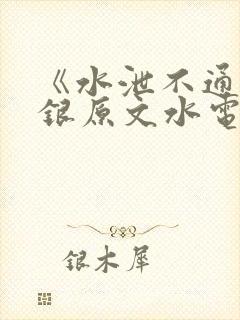 《水泄不通
银原文水電
银木犀